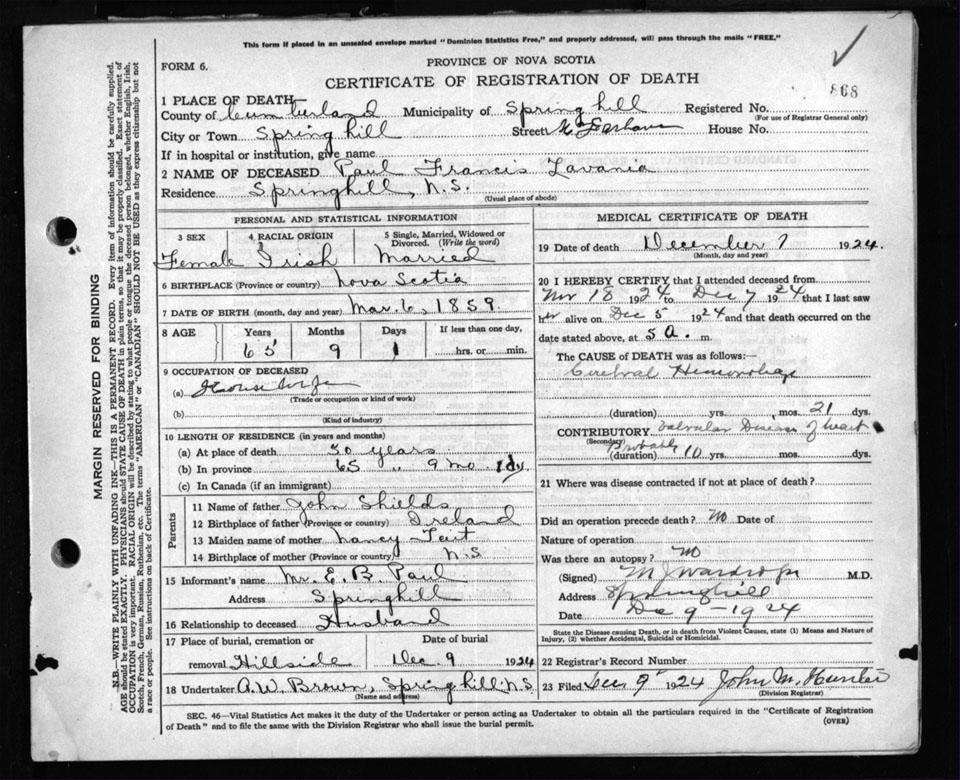 This form if placed in an unsealed envelope marked "Dominion Statistics Free," and properly addressed, will pass through the mails "FREE."
FORM 6.
PROVINCE OF NOVA SCOTIA
CERTIFICATE OF REGISTRATION OF DEATH
868
1 PLACE OF DEATH
County of Cumberland Municipality of Springhill Registered No.
(For use of Registrar General only)
City or Town Springhill Street House No.
If in hospital or institution, give name
2 NAME OF DECEASED Paul Francis Lavania
Residence Springhill, N.S.
(Usual place of abode)
PERSONAL AND STATISTICAL INFORMATION
3 SEX 4 RACIAL ORIGIN 5 Single, Married, Widowed or Divorced. (Write the word)
Female Irish Married
6 BIRTHPLACE (Province or country) Nova Scotia
7 DATE OF BIRTH (month, day and year) Mar. 6, 1859
8 AGE Years Months Days If less than one day,
65 9 1 hrs. or min.
9 OCCUPATION OF DECEASED
(a) House Wife
(Trade or occupation or kind of work)
(b)
(Kind of industry)
10 LENGTH OF RESIDENCE (in years and months)
(a) At place of death 50 years
(b) In province 65 " 9 mo. 1 dy.
(c) In Canada (if an immigrant)
Parents
11 Name of father John Shields
12 Birthplace of father (Province or country) Ireland
13 Maiden name of mother Nancy Teit
14 Birthplace of mother (Province or country) N.S
15 Informant's name Mr. E. B Paul
Address Springhill
16 Relationship to deceased Husband
17 Place of burial, cremation or Date of burial
removal Hillside Dec. 9 1924
18 Undertaker A. W. Brown, Springhill, N.S.
(Name and address)
MEDICAL CERTIFICATE OF DEATH
19 Date of death December 7 1924.
(Month, day and year)
20 I HEREBY CERTIFY that I attended deceased from
Nov 18 1924 to Dec 7 1924 that I last saw
her alive on Dec 5 1924 and that death occurred on the
date stated above, at 5 a. m.
The CAUSE of DEATH was as follows:—
Cerebral Hemorrhage
(duration) yrs. mos. 21 dys.
CONTRIBUTORY Valvular Disease of heart
(Secondary) Probably
(duration) 10 yrs. mos. dys.
21 Where was disease contracted if not at place of death?
Did an operation precede death? No Date of
Nature of operation
Was there an autopsy? No
(Signed) M. J. Wardrope M.D.
Address Springhill
Date Dec 9 - 1924
State the Disease causing Death, or in death from Violent Causes, state (1) Means and Nature of
Injury, (2) whether Accidental, Suicidal or Homicidal.
22 Registrar's Record Number
23 Filed Dec 9" 1924 John M. Hunter
(Division Registrar)
SEC. 46—Vital Statistics Act makes it the duty of the Undertaker or person acting as Undertaker to obtain all the particulars required in the "Certificate of Registration
of Death" and to file the same with the Division Registrar who shall issue the burial permit.
(OVER)
MARGIN RESERVED FOR BINDING
N.B.—WRITE PLAINLY WITH UNFADING INK—THIS IS A PERMANENT RECORD. Every item of information should be carefully supplied.
AGE should be stated EXACTLY. PHYSICIANS should STATE CAUSE OF DEATH in plain terms, so that it may be properly classified. Exact statement of
OCCUPATION is very important. RACIAL ORIGIN will be described by stating to what people or tongue the deceased person belonged, whether English, Irish,
Scotch, French, German, Russian, Ruthenian, etc. The terms "AMERICAN" or "CANADIAN" SHOULD NOT BE USED as they express citizenship but not
a race or people. See instructions on back of Certificate.